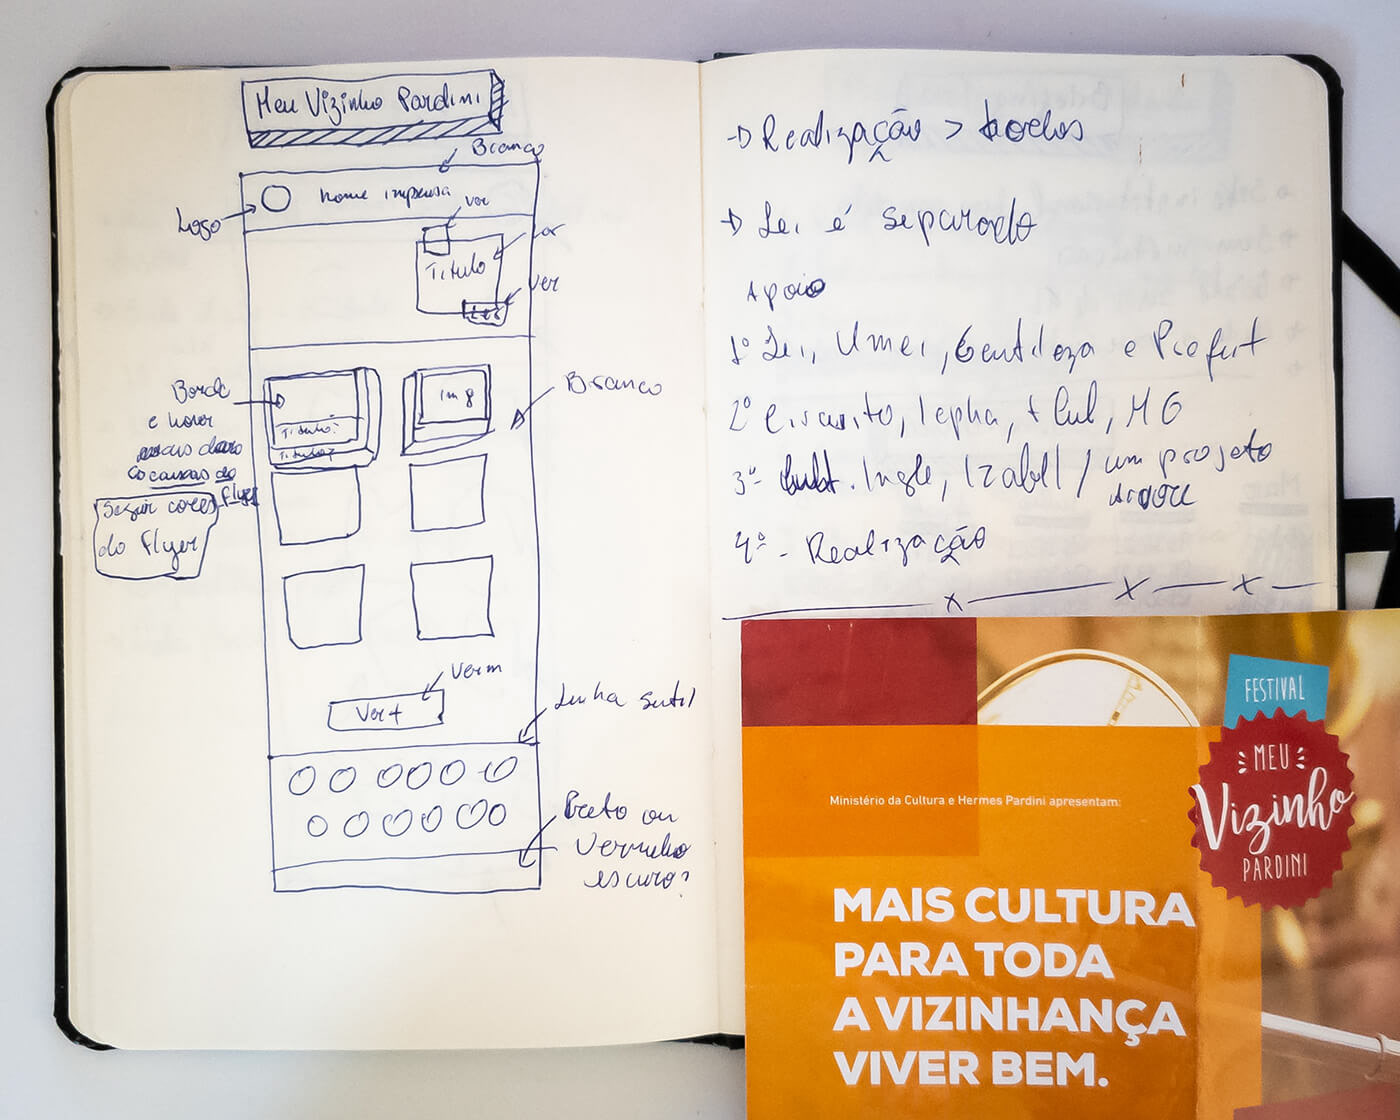 Meu Vizinho Pardini
Branco
nome imprensa
Logo
ver
cor
Titulo
ver
Borda
e hover
mais claro
do flyer
Seguir cores
do flyer
Titulo
Titulo
img
Branco
Verm
Ver +
Linha sutil
Preto ou
Vermelho
escuro?
→ Realização > todos
→ Lei é separado
Apoio
1º Lei, Umei, Gentileza e Prefeit
2º Circuito, Iepha, + Cul, MG
3º - Cult. Ingle, Izabel / um projeto
4º - Realização
x x x
FESTIVAL
MEU
Vizinho
PARDINI
Ministério da Cultura e Hermes Pardini apresentam:
MAIS CULTURA
PARA TODA
A VIZINHANÇA
VIVER BEM.